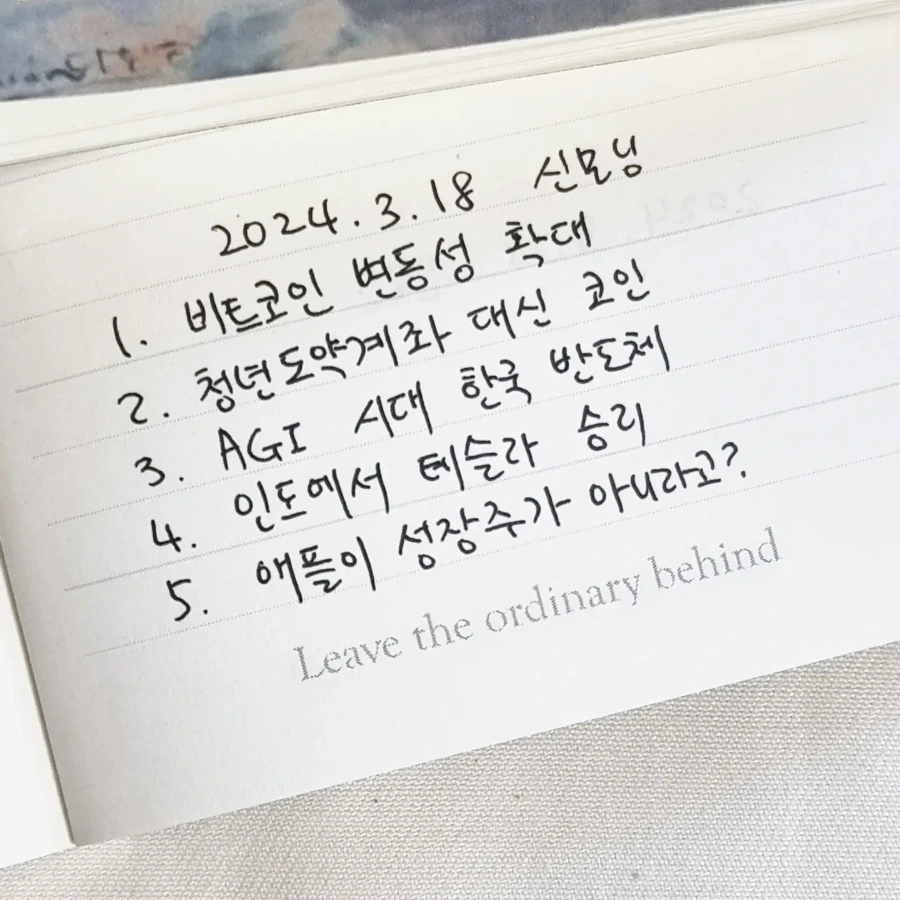 2024.3.18 신모닝
1. 비트코인 변동성 확대
2. 청년도약계좌 대신 코인
3. AGI 시대 한국 반도체
4. 인도에서 테슬라 승리
5. 애플이 성장주가 아니라고?
Leave the ordinary behind